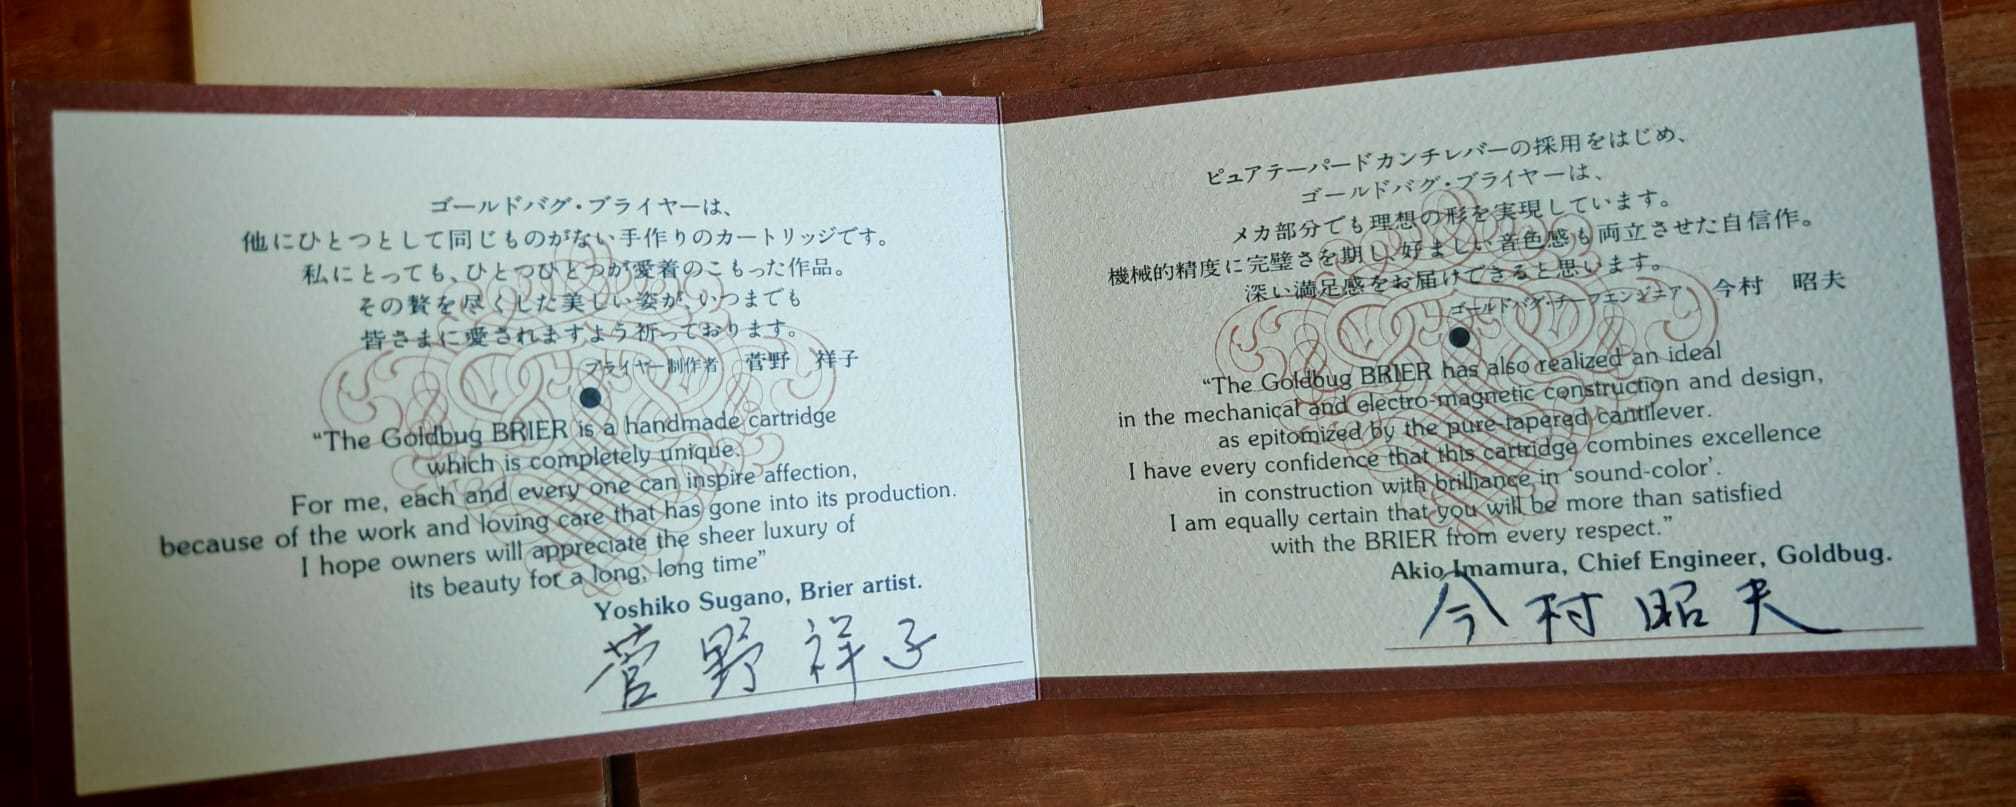 ゴールドバグ・ブライヤーは、
他にひとつとして同じものがない手作りのカートリッジです。
私にとっても、ひとつひとつが愛着のこもった作品。
その贅を尽くした美しい姿が、いつまでも
皆さまに愛されますよう祈っております。
ブライヤー制作者　菅野　祥子
“The Goldbug BRIER is a handmade cartridge
which is completely unique.
For me, each and every one can inspire affection,
because of the work and loving care that has gone into its production.
I hope owners will appreciate the sheer luxury of
its beauty for a long, long time”
Yoshiko Sugano, Brier artist.
菅野祥子
ピュアテーパードカンチレバーの採用をはじめ、
ゴールドバグ・ブライヤーは、
メカ部分でも理想の形を実現しています。
機械的精度に完璧さを期し、好ましい音色感も両立させた自信作。
深い満足感をお届けできると思います。
ゴールドバグ・チーフエンジニア　今村　昭夫
“The Goldbug BRIER has also realized an ideal
in the mechanical and electro-magnetic construction and design,
as epitomized by the pure-tapered cantilever.
I have every confidence that this cartridge combines excellence
in construction with brilliance in ‘sound-color’.
I am equally certain that you will be more than satisfied
with the BRIER from every respect.”
Akio Imamura, Chief Engineer, Goldbug.
今村昭夫